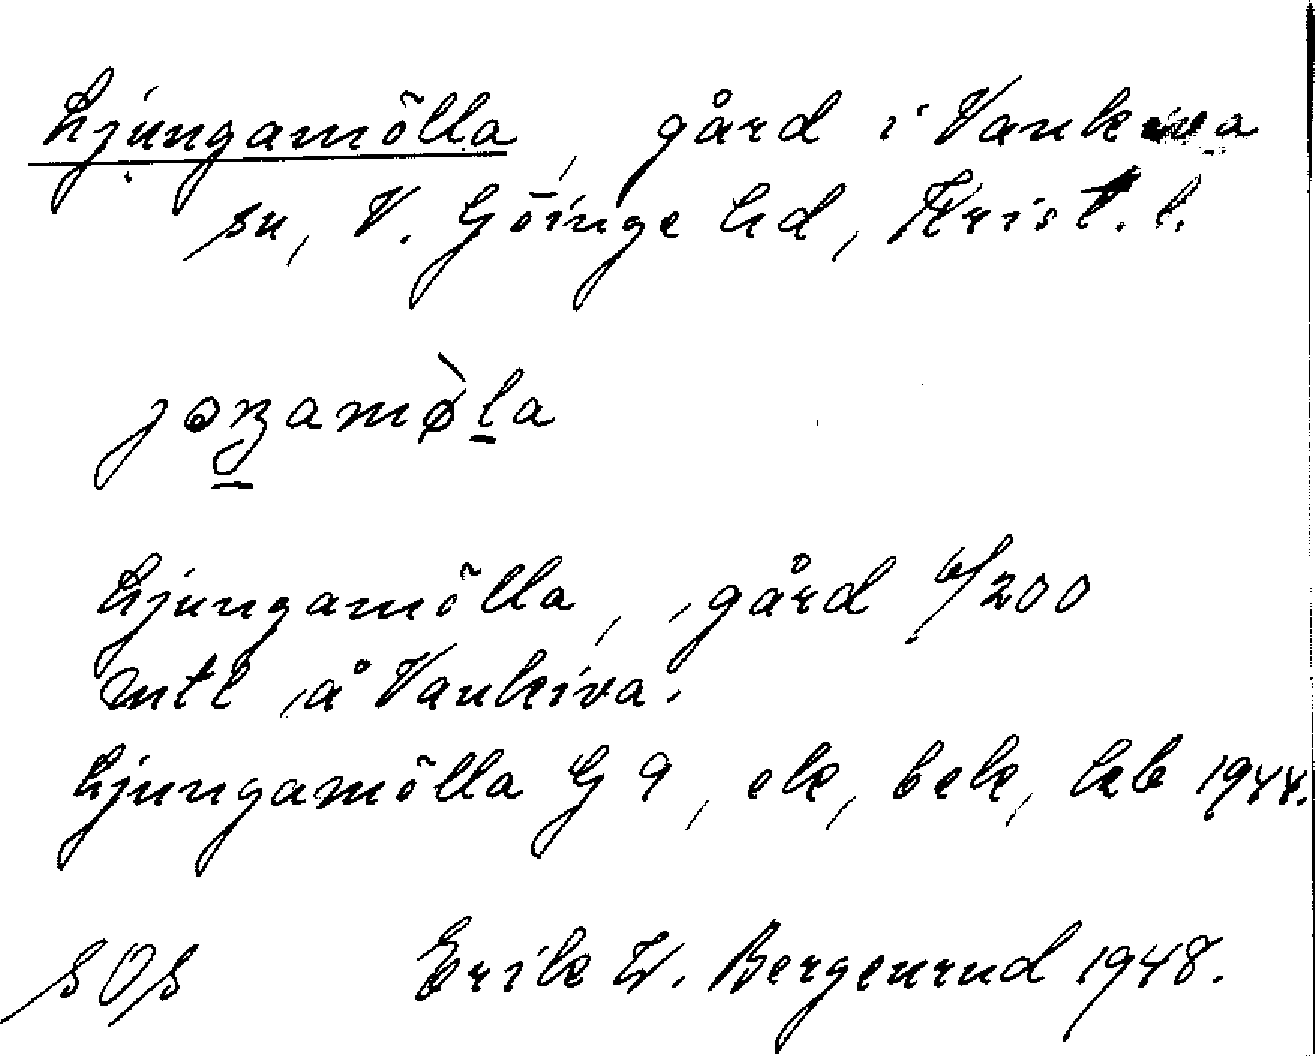 Ljungamölla, gård i Vankiva
sn, V. Göinge hd, Krist. l.
Ljungamölla, gård 6/200
mtl å Vankiva.
Ljungamölla G 9, ek, bek, kb 1944.
SOS Erik W. Bergenrud 1948.